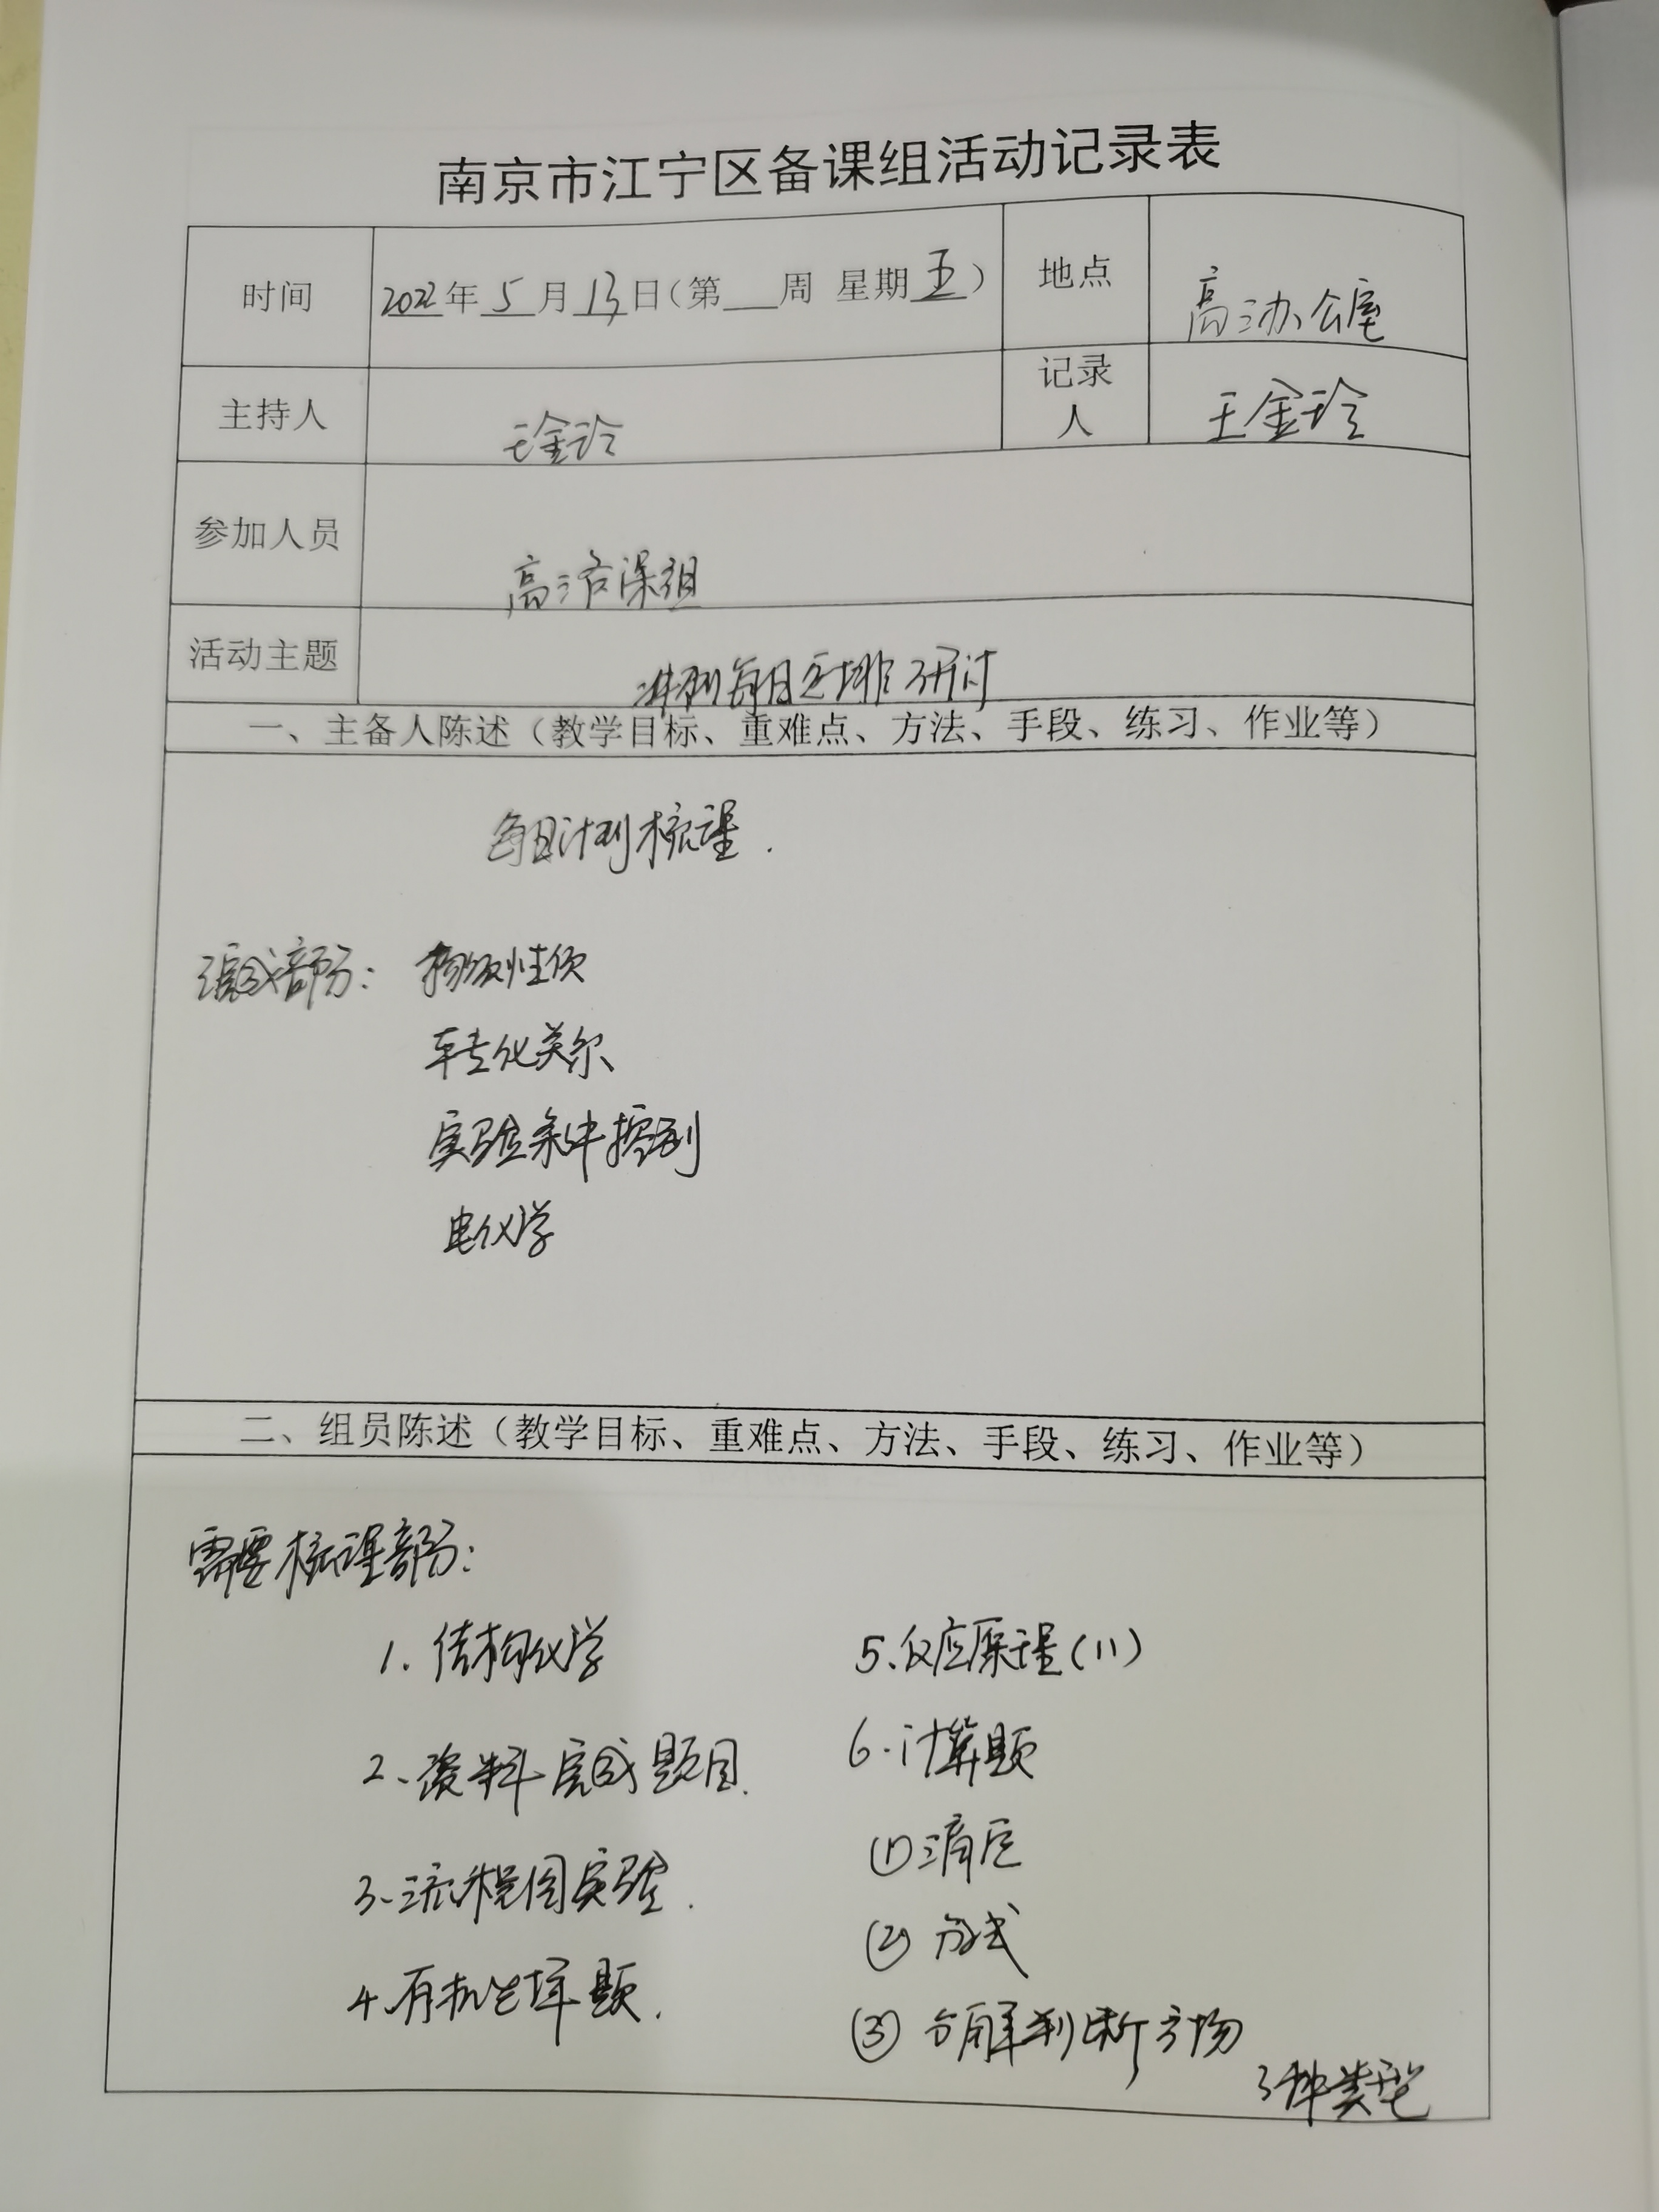 南京市江宁区备课组活动记录表
时间 2022年5月13日(第 周 星期五) 地点 高三办公室
主持人 王金玲 记录人 王金玲
参加人员 高三备课组
活动主题 冲刺每日安排研讨
一、主备人陈述(教学目标、重难点、方法、手段、练习、作业等)
每日计划梳理.
部分: 物质性质
转化关系
实验条件控制
电化学
二、组员陈述(教学目标、重难点、方法、手段、练习、作业等)
需要梳理部分:
1. 结构化学
2、资料完成题目.
3、流程图实验.
4、有机推断题.
5、反应原理(11)
6、计算题
(1) 滴定
(2) 方式
(3) 分解判断产物
3种类型